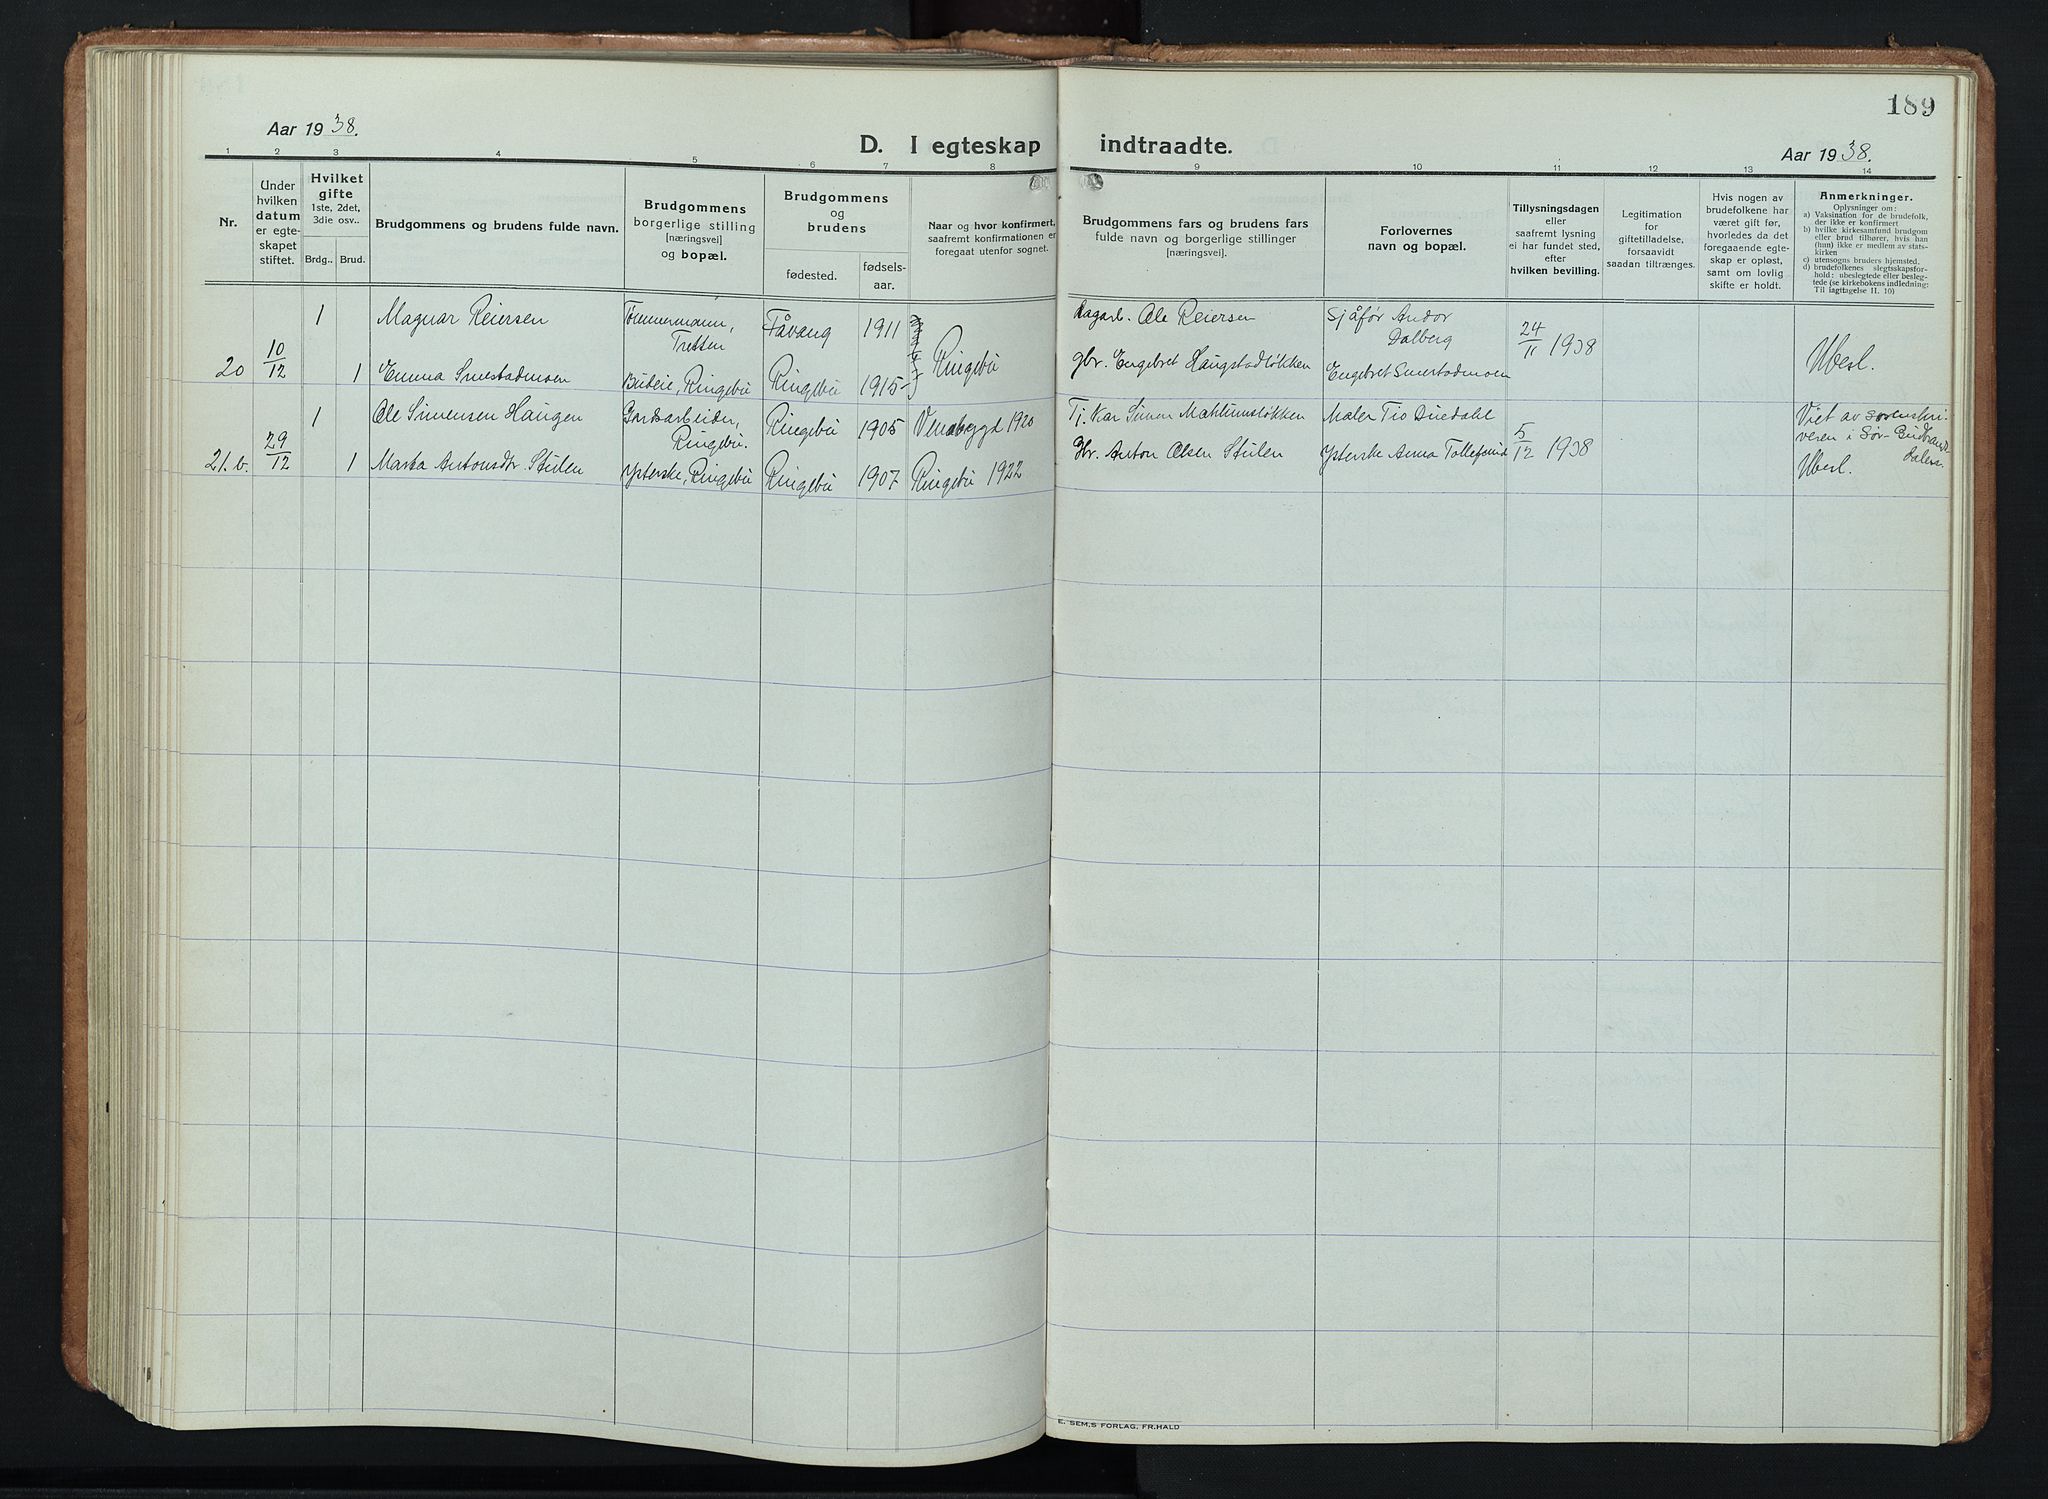 189
Aar 1938.
D. I egteskap indtraadte.
Aar 1938.
1 2 3 4 5 6 7 8 9 10 11 12 13 14
Nr.
Under
hvilken
datum
er egte-
skapet
stiftet.
Hvilket
gifte
1ste, 2det,
3die osv..
Brdg.. Brud.
Brudgommens og brudens fulde navn.
Brudgommens
borgerlige stilling
[næringsvei]
og bopæl.
Brudgommens
og
brudens
fødested.
fødsels-
aar.
Naar og hvor konfirmert,
saafremt konfirmationen er
foregaat utenfor sognet.
Brudgommens fars og brudens fars
fulde navn og borgerlige stillinger
[næringsvei].
Forlovernes
navn og bopæl.
Tillysningsdagen
eller
saafremt lysning
ei har fundet sted,
efter
hvilken bevilling.
Legitimation
for
giftetilladelse,
forsaavidt
saadan tiltrænges.
Hvis nogen av
brudefolkene har
været gift før,
hvorledes da det
foregaaende egte-
skap er opløst,
samt om lovlig
skifte er holdt.
Anmerkninger.
Oplysninger om:
a) Vaksination for de brudefolk,
der ikke er konfirmert
b) hvilke kirkesamfund brudgom
eller brud tilhører, hvis han
(hun) ikke er medlem av stats-
kirken
c) utensogns bruders hjemsted.
d) brudefolkenes slegtsskapsfor-
hold: ubeslegtede eller besleg-
tede (se kirkebokens indledning:
Til iagttagelse II. 10)
20
10/12
1
Magnar Reiersen
Tømmermann,
Tretten
Fåvang
1911
Dagarb. Ole Reiersen
Sjåfør Andor
Dalberg
24/11 1938
Ubesl.
1
Emma Smestadmoen
Budeie, Ringebu
Ringebu
1915
Ringebu
gbr. Engebret Haugstadløkken
Engebret Smestadmoen
21.b.
29/12
1
Ole Simensen Haugen
Gardsarbeider,
Ringebu.
Ringebu
1905
Venabygd 1920
Tj. kar Simen
Maler Tio Duedahl
5/12 1938
Viet av sorenskri-
veren i Sør-Gudbrands-
dalen.
Ubesl.
1
Marta Antonsdtr. Stulen
Ysterske, Ringebu
Ringebu
1907
Ringebu 1922
Gbr. Anton Olsen Stulen
Ysterske Anna
E. SEM,S FORLAG, FR.HALD